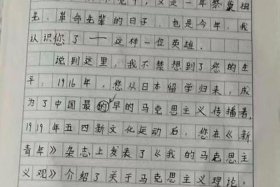 又是一年祭奠祖
先、革命先辈的日子，也是今年，我
认识了——这样一位英雄。
说到这里，我不禁想到了您的生
平，1916年，您从日本留学归来，成
为了中国最早的马克思主义传播者，
1919年五四新文化运动后，您在《新
青年》杂志上发表了《我的马克思主
义观》介绍了关于马克思主义理论，